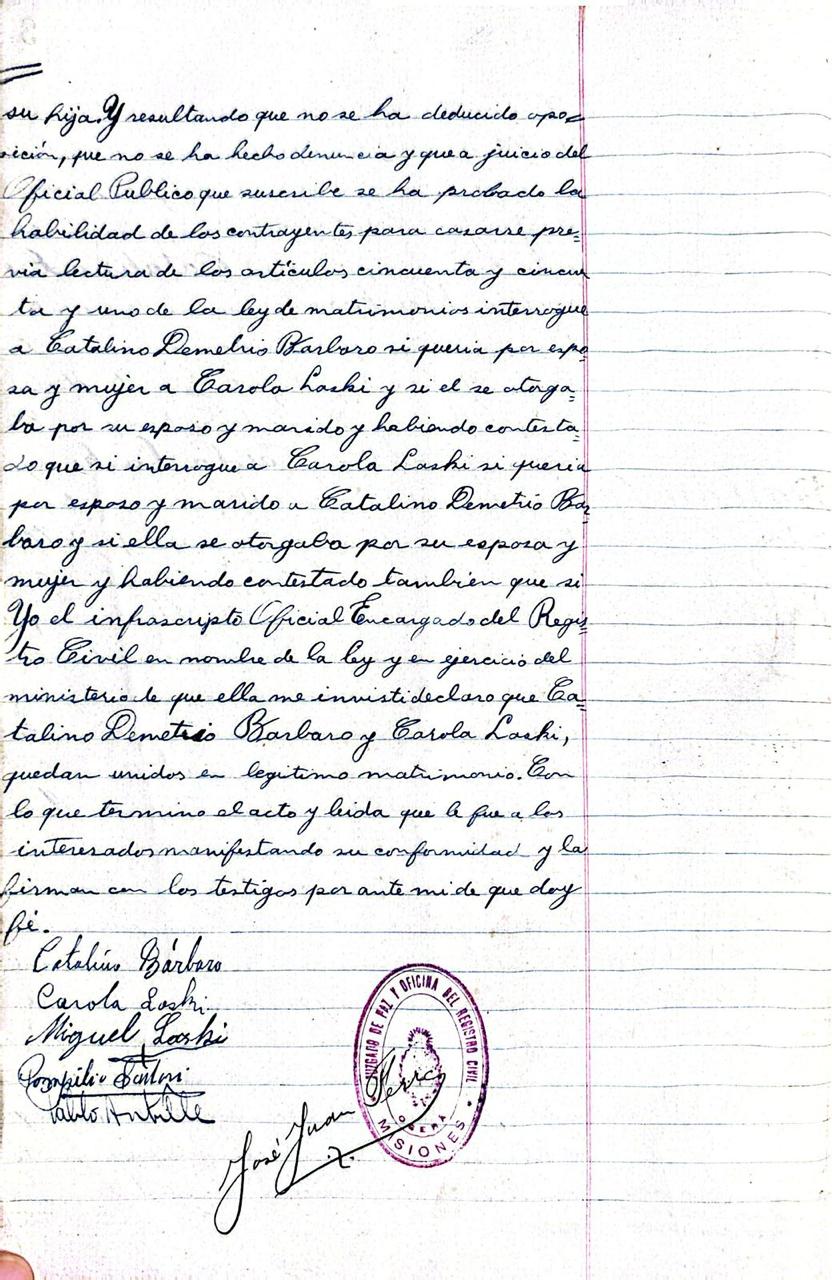 su hija. Y resultando que no se ha deducido opo=
sición, que no se ha hecho denuncia y que a juicio del
Oficial Publico que suscribe se ha probado la
habilidad de los contrayentes para casarse pre=
via lectura de los artículos cincuenta y cincuen
ta y uno de la ley de matrimonios interrogue
a Catalino Demetrio Barbaro si queria por espo=
sa y mujer a Carola Laski y si el se otorga=
ba por su esposo y marido y habiendo contesta=
do que si interrogue a Carola Laski si queria
por esposo y marido a Catalino Demetrio Bar=
baro y si ella se otorgaba por su esposa y
mujer y habiendo contestado tambien que si
Yo el infrascripto Oficial Encargado del Regis=
tro Civil en nombre de la ley y en ejercicio del
ministerio de que ella me investi declaro que Ca=
talino Demetrio Barbaro y Carola Laski,
quedan unidos en legitimo matrimonio. Con
lo que termino el acto y leida que le fue a los
interesados manifestando su conformidad y la
firman con los testigos por ante mi de que doy
fé.
Catalino Bárbaro
Carola Laski
Miguel Laski
Pompilio
Pablo
José Juan
JUZGADO DE PAZ Y OFICINA DEL REGISTRO CIVIL
OBERA
MISIONES